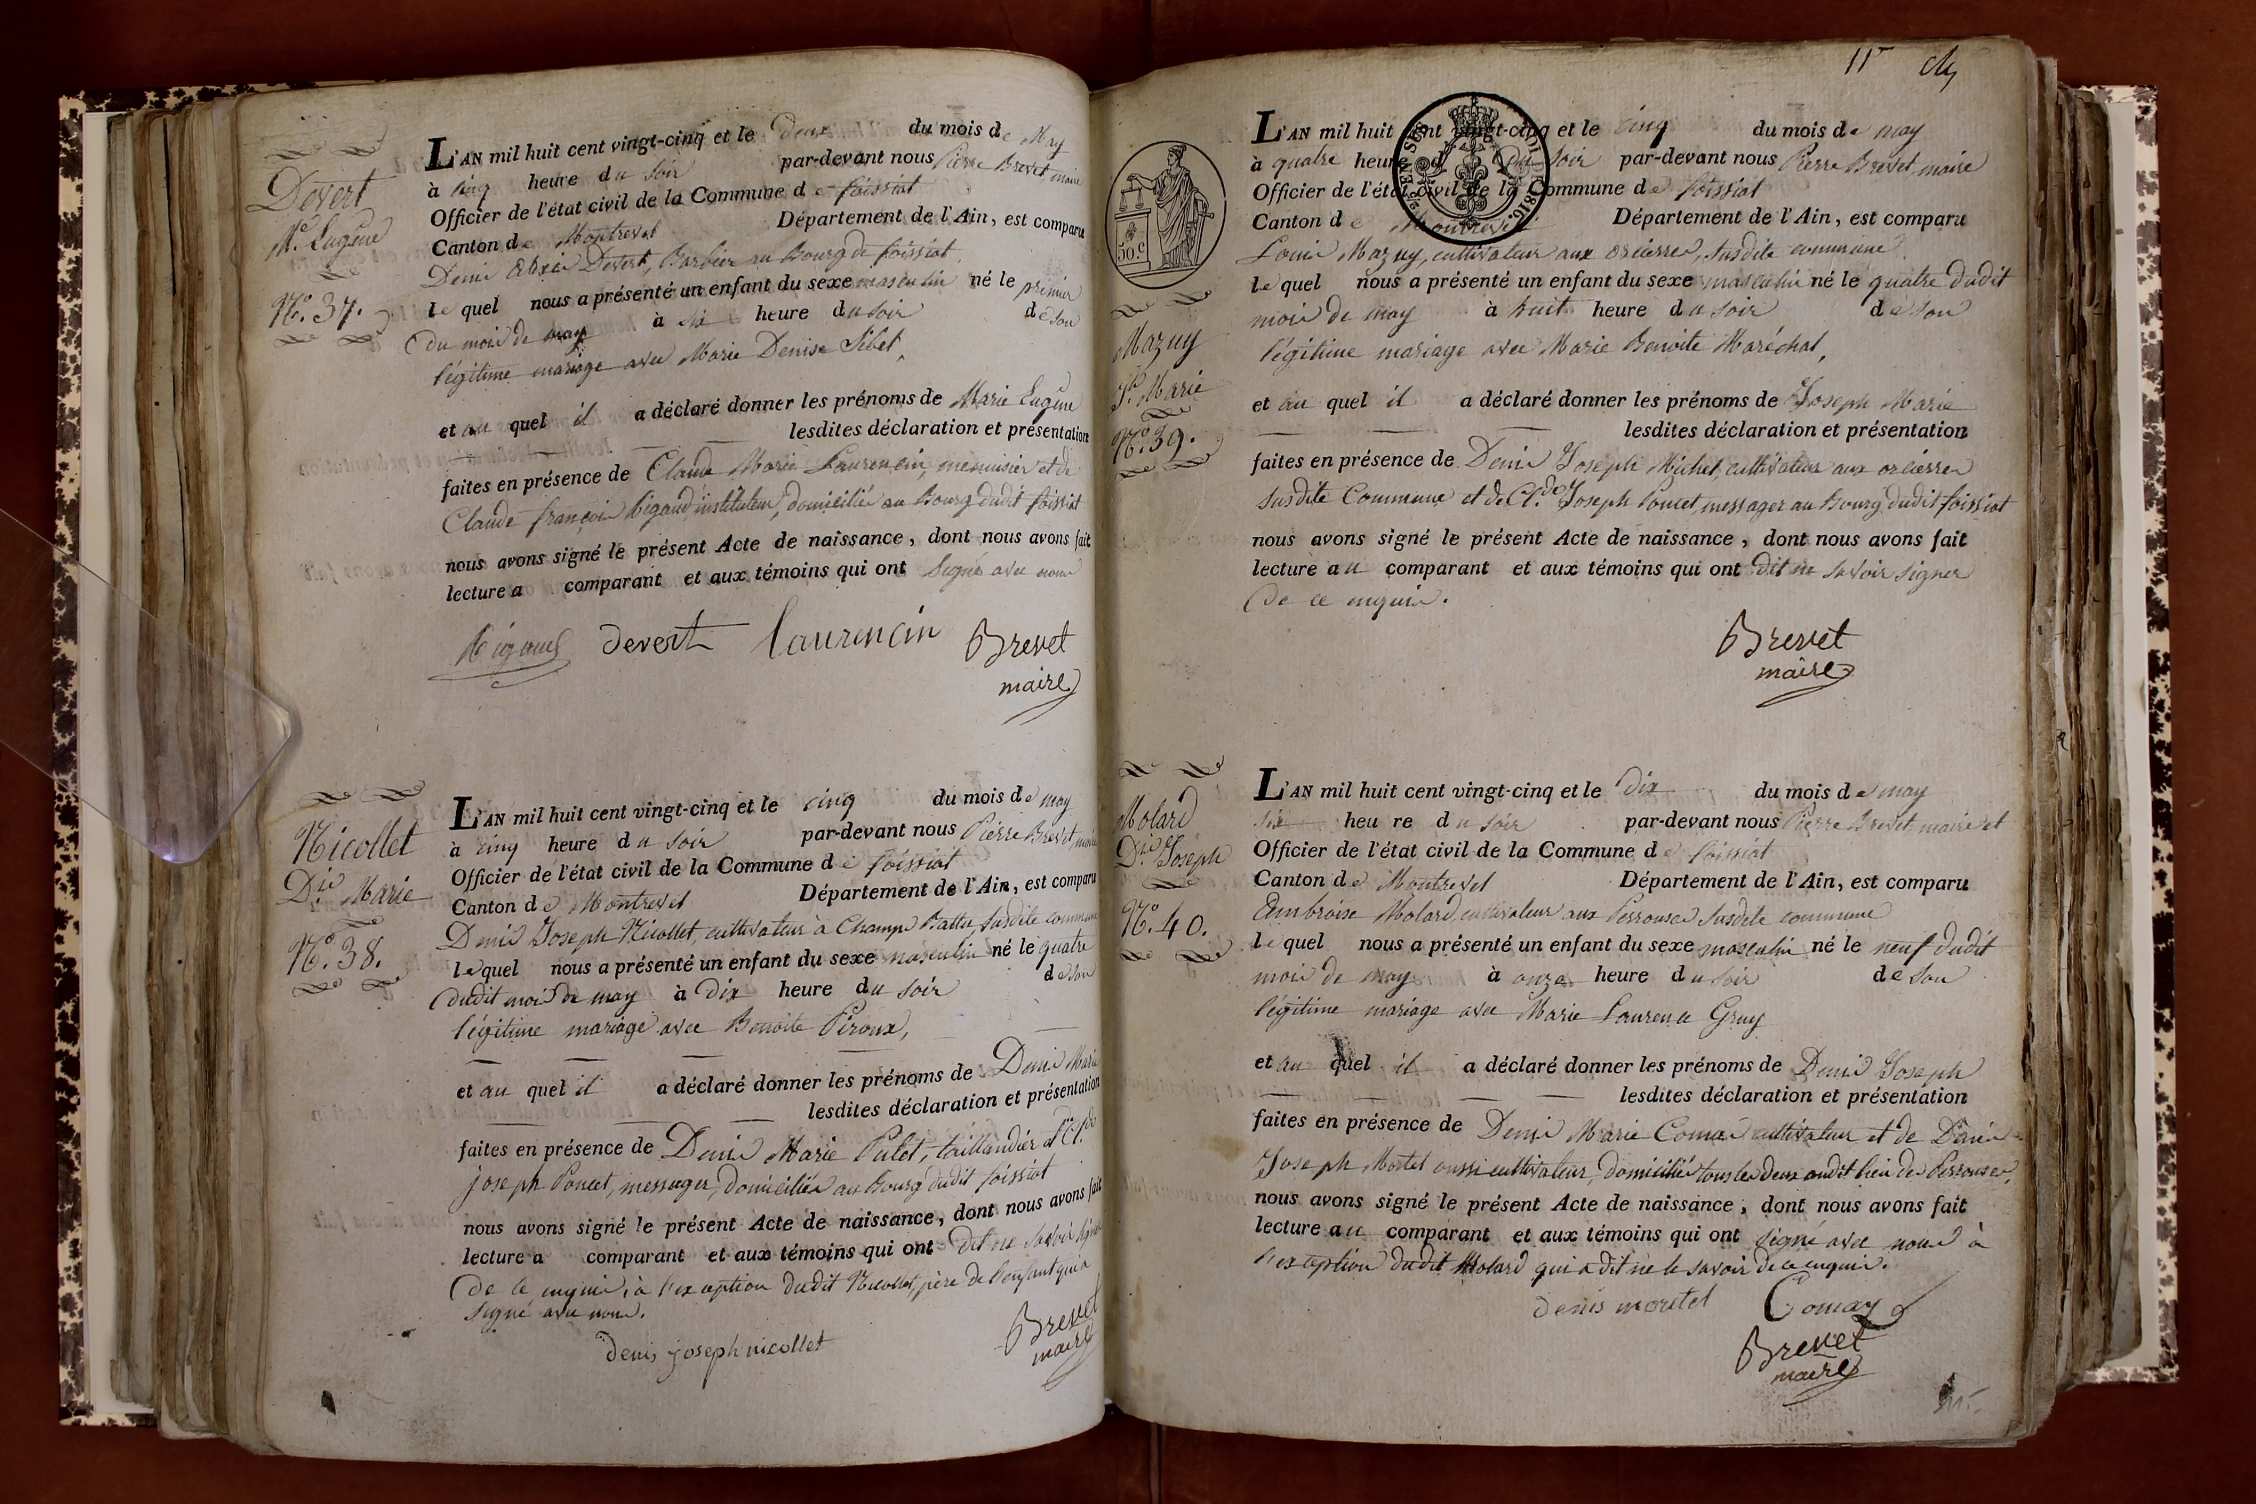 Devert
Me. Eugène
No. 37.
L'AN mil huit cent vingt-cinq et le deux du mois de May
à cinq heure du soir par-devant nous Pierre Brevet, maire
Officier de l'état civil de la Commune de foissiat
Canton de Montrevel Département de l'Ain, est comparu
Denis Devert, Barbier au Bourg de foissiat,
lequel nous a présenté un enfant du sexe masculin né le premier
du mois de may à six heure du soir de son
légitime mariage avec Marie Denise Sibet,
et au quel il a déclaré donner les prénoms de Marie Eugène
lesdites déclaration et présentation
faites en présence de Claude Marie Laurencin, menuisier et de
Claude françois Rigaud instituteur, domiciliés au Bourg dudit foissiat
nous avons signé le présent Acte de naissance, dont nous avons fait
lecture a comparant et aux témoins qui ont Signé avec nous
Rigaud devert laurencin Brevet
maire
Nicollet
Dis. Marie
No. 38.
L'AN mil huit cent vingt-cinq et le cinq du mois de may
à cinq heure du soir par-devant nous Pierre Brevet, maire
Officier de l'état civil de la Commune de foissiat
Canton de Montrevel Département de l'Ain, est comparu
Denis Joseph Nicollet, cultivateur à Champ Battu, susdite commune
lequel nous a présenté un enfant du sexe masculin né le quatre
dudit mois de may à dix heure du soir de son
légitime mariage avec Benoite Péroux,
et au quel il a déclaré donner les prénoms de Denis Marie
lesdites déclaration et présentation
faites en présence de Denis Marie Pulet, taillandier et Cl.de
joseph Poncet, messager, domiciliés au Bourg dudit foissiat
nous avons signé le présent Acte de naissance, dont nous avons fait
lecture a comparant et aux témoins qui ont dit ne savoir signer
de ce enquis, à l'exception dudit Nicollet, père de l'enfant qui a
signé avec nous.
denis joseph nicollet Brevet
maire
11e
50 c
2 CEN. SUS DI DE 1816.
Mazuy
Jh. Marie
No. 39.
L'AN mil huit cent vingt-cinq et le cinq du mois de may
à quatre heure du soir par-devant nous Pierre Brevet, maire
Officier de l'état civil de la Commune de foissiat
Canton de Montrevel Département de l'Ain, est comparu
Louis Mazuy, cultivateur aux orcières, susdite commune
lequel nous a présenté un enfant du sexe masculin né le quatre dudit
mois de may à huit heure du soir de son
légitime mariage avec Marie Benoite Maréchal,
et au quel il a déclaré donner les prénoms de Joseph Marie
lesdites déclaration et présentation
faites en présence de Denis Joseph Michel, cultivateur aux orcières
susdite Commune et de Cl.de Joseph Poncet, messager au Bourg dudit foissiat
nous avons signé le présent Acte de naissance, dont nous avons fait
lecture au comparant et aux témoins qui ont dit ne savoir signer
de ce enquis.
Brevet
maire
Molard
Dis. Joseph
No. 40.
L'AN mil huit cent vingt-cinq et le dix du mois de may
six heure du soir par-devant nous Pierre Brevet maire et
Officier de l'état civil de la Commune de foissiat
Canton de Montrevel Département de l'Ain, est comparu
Ambroise Molard, cultivateur aux Perrouses susdite commune
lequel nous a présenté un enfant du sexe masculin né le neuf dudit
mois de may à onze heure du soir de son
légitime mariage avec Marie Laurence Gruy
et au quel il a déclaré donner les prénoms de Denis Joseph
lesdites déclaration et présentation
faites en présence de Denis Marie Comas cultivateur et de Denis
Joseph Mortel aussi cultivateur, domiciliés tous les deux audit lieu des Perrouses,
nous avons signé le présent Acte de naissance, dont nous avons fait
lecture au comparant et aux témoins qui ont signé avec nous à
l'exception dudit Molard qui a dit ne le savoir de ce enquis.
denis moretel Comas
Brevet
maire